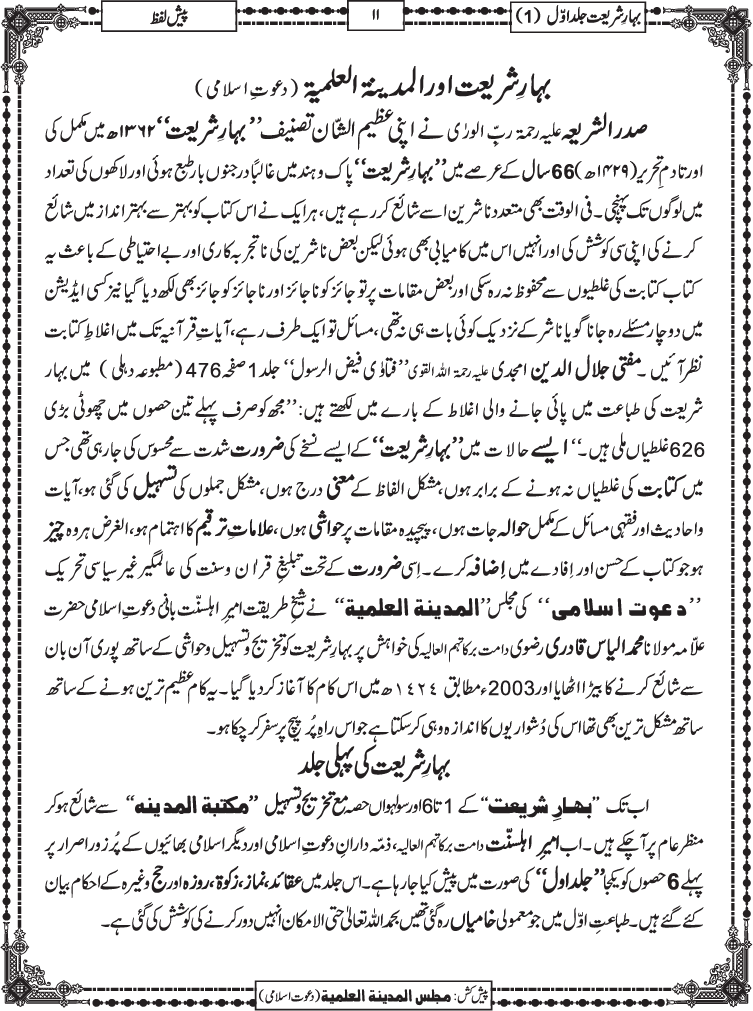 بہارِ شریعت جلد اوّل (1)
۱۱
پیش لفظ
بہارِ شریعت اور المدینۃ العلمیۃ (دعوتِ اسلامی)
صدر الشریعہ علیہ رحمۃ ربِّ الورٰی نے اپنی عظیم الشّان تصنیف ’’بہارِ شریعت‘‘ ۱۳۶۲ھ میں مکمل کی
اور تا دمِ تحریر (۱۴۲۹ھ) 66 سال کے عرصے میں ’’بہارِ شریعت‘‘ پاک و ہند میں غالباً درجنوں بار طبع ہوئی اور لاکھوں کی تعداد
میں لوگوں تک پہنچی۔ فی الوقت بھی متعدد ناشرین اسے شائع کر رہے ہیں، ہر ایک نے اس کتاب کو بہتر سے بہتر انداز میں شائع
کرنے کی اپنی سی کوشش کی اور انہیں اس میں کامیابی بھی ہوئی لیکن بعض ناشرین کی نا تجربہ کاری اور بے احتیاطی کے باعث یہ
کتاب کتابت کی غلطیوں سے محفوظ نہ رہ سکی اور بعض مقامات پر تو جائز کو ناجائز اور ناجائز کو جائز بھی لکھ دیا گیا نیز کسی ایڈیشن
میں دو چار مسئلے رہ جانا گویا ناشر کے نزدیک کوئی بات ہی نہ تھی، مسائل تو ایک طرف رہے، آیاتِ قرآنیہ تک میں اغلاطِ کتابت
نظر آئیں۔ مفتی جلال الدین امجدی علیہ رحمۃ اللہ القوی ’’فتاوٰی فیض الرسول‘‘ جلد 1 صفحہ 476 (مطبوعہ دہلی) میں بہار
شریعت کی طباعت میں پائی جانے والی اغلاط کے بارے میں لکھتے ہیں: ’’مجھ کو صرف پہلے تین حصوں میں چھوٹی بڑی
626 غلطیاں ملی ہیں۔‘‘ ایسے حالات میں ’’بہارِ شریعت‘‘ کے ایسے نسخے کی ضرورت شدت سے محسوس کی جا رہی تھی جس
میں کتابت کی غلطیاں نہ ہونے کے برابر ہوں، مشکل الفاظ کے معنٰی درج ہوں، مشکل جملوں کی تسہیل کی گئی ہو، آیات
و احادیث اور فقہی مسائل کے مکمل حوالہ جات ہوں، پیچیدہ مقامات پر حواشی ہوں، علاماتِ ترقیم کا اہتمام ہو، الغرض ہر وہ چیز
ہو جو کتاب کے حسن اور اِفادے میں اِضافہ کرے۔ اِسی ضرورت کے تحت تبلیغِ قران و سنت کی عالمگیر غیر سیاسی تحریک
’’دعوت اسلامی‘‘ کی مجلس ’’المدینۃ العلمیۃ‘‘ نے شیخِ طریقت امیرِ اہلسنّت بانیٔ دعوتِ اسلامی حضرت
علّامہ مولانا محمد الیاس قادری رضوی دامت برکاتہم العالیہ کی خواہش پر بہارِ شریعت کو تخریج و تسہیل و حواشی کے ساتھ پوری آن بان
سے شائع کرنے کا بیڑا اٹھایا اور 2003ء مطابق ۱۴۲۴ھ میں اس کام کا آغاز کر دیا گیا۔ یہ کام عظیم ترین ہونے کے ساتھ
ساتھ مشکل ترین بھی تھا اس کی دُشواریوں کا اندازہ وہی کر سکتا ہے جو اس راہِ پُر پیچ پر سفر کر چکا ہو۔
بہارِ شریعت کی پہلی جلد
اب تک ’’بہارِ شریعت‘‘ کے 1 تا 6 اور سولہواں حصہ مع تخریج و تسہیل ’’مکتبۃ المدینہ‘‘ سے شائع ہو کر
منظر عام پر آ چکے ہیں۔ اب امیرِ اہلسنّت دامت برکاتہم العالیہ، ذمّہ دارانِ دعوتِ اسلامی اور دیگر اسلامی بھائیوں کے پُر زور اصرار پر
پہلے 6 حصوں کو یکجا ’’جلد اول‘‘ کی صورت میں پیش کیا جا رہا ہے۔ اس جلد میں عقائد، نماز، زکوۃ، روزہ اور حج وغیرہ کے احکام بیان
کئے گئے ہیں۔ طباعتِ اوّل میں جو معمولی خامیاں رہ گئی تھیں بحمد اللہ تعالیٰ حتی الامکان انہیں دور کرنے کی کوشش کی گئی ہے۔
پیش کش: مجلس المدینۃ العلمیۃ (دعوتِ اسلامی)